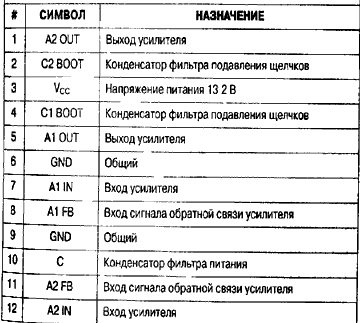 # СИМВОЛ НАЗНАЧЕНИЕ
1 A2 OUT Выход усилителя
2 C2 BOOT Конденсатор фильтра подавления щелчков
3 VCC Напряжение питания 13 2 В
4 C1 BOOT Конденсатор фильтра подавления щелчков
5 A1 OUT Выход усилителя
6 GND Общий
7 A1 IN Вход усилителя
8 A1 FB Вход сигнала обратной связи усилителя
9 GND Общий
10 C Конденсатор фильтра питания
11 A2 FB Вход сигнала обратной связи усилителя
12 A2 IN Вход усилителя